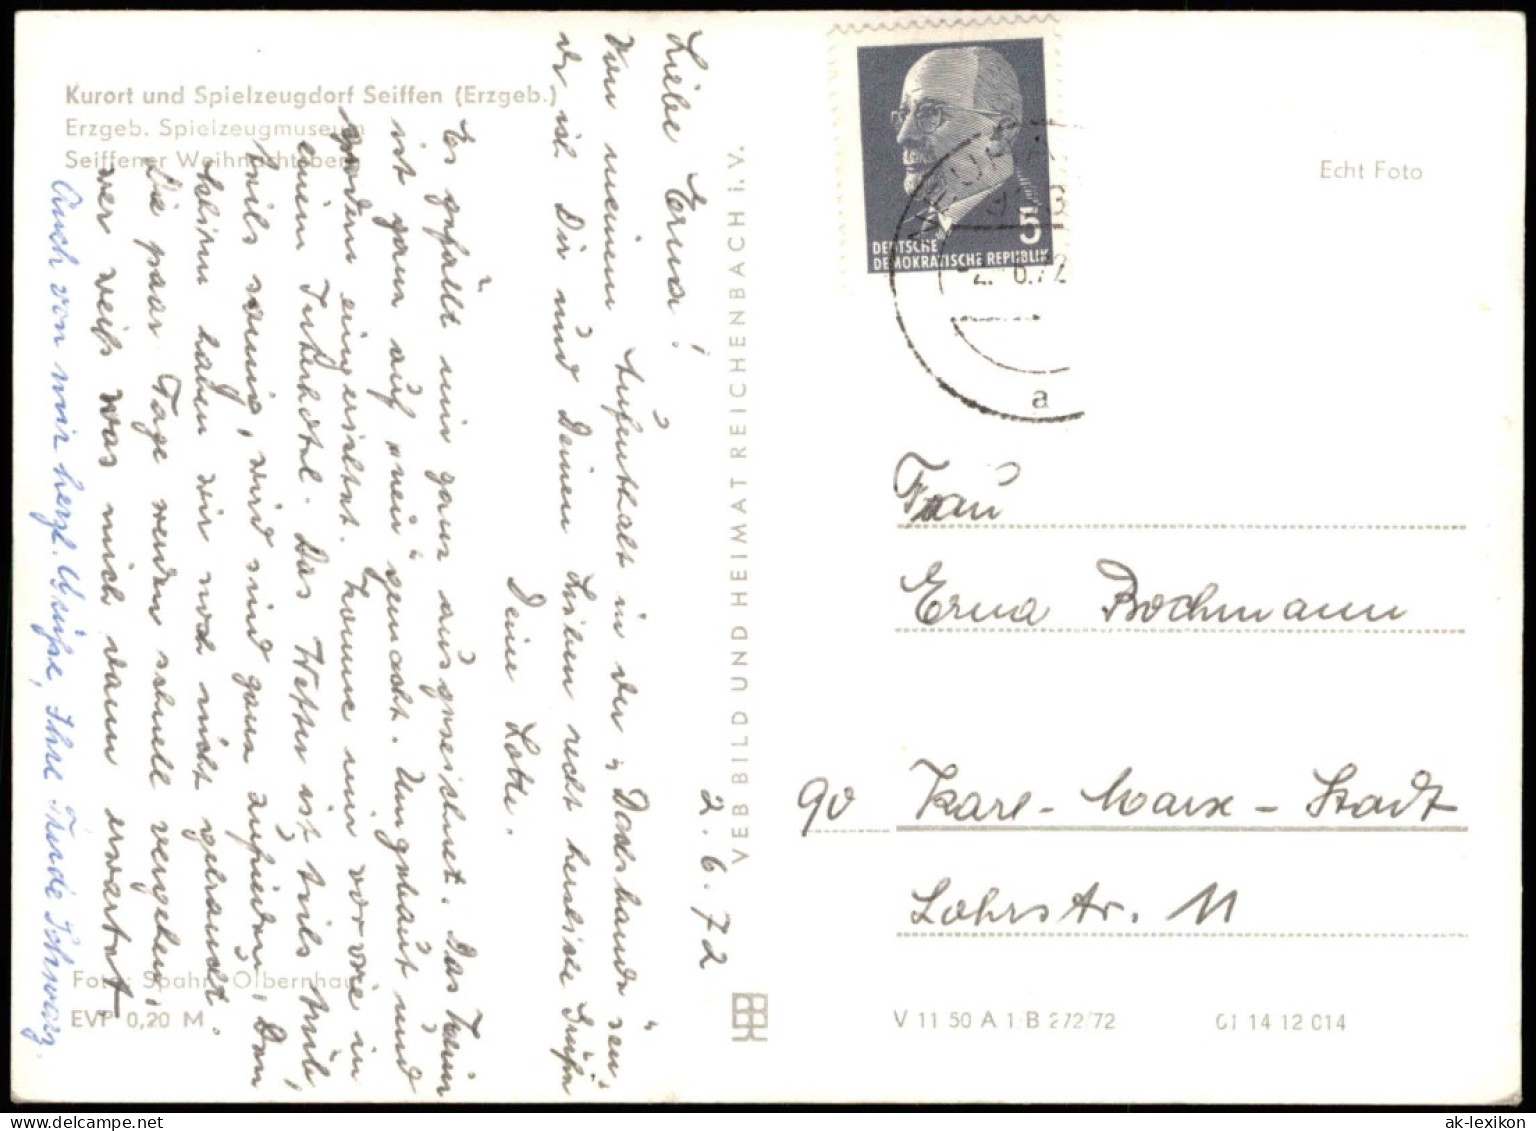 Kurort und Spielzeugdorf Seiffen (Erzgeb.)
Erzgeb. Spielzeugmuseum
Seiffener Weihnachtsberg
2.6.72
Liebe Erna!
Von meinem Aufenthalt in der „
der ich Dir und Deinen Lieben recht herzliche Grüße
Deine Lotte.
Es gefällt mir ganz ausgezeichnet. Das Heim
ist ganz auf „neu“ gemacht. Umgebaut und
modern eingerichtet. Komme mir vor wie in
einem Interhotel. Das Wetter ist teils trüb,
teils sonnig, wird sind ganz zufrieden, Den
Schirm haben wir noch nicht gebraucht.
Die paar Tage werden schnell vergehen,
wer weiß was mich dann erwartet
Auch von mir herzl. Grüße, Ihre Trude Schwarz.
Foto: Spahn, Olbernhau
EVP 0,20 M
VEB BILD UND HEIMAT REICHENBACH i. V.
Echt Foto
5
DEUTSCHE
DEMOKRATISCHE REPUBLIK
6.72
a
Frau
Erna Bochmann
90 Karl-Marx-Stadt
Lohrstr. 11
V 11 50 A 1/B 272/72
01 14 12 014
ak-lexikon